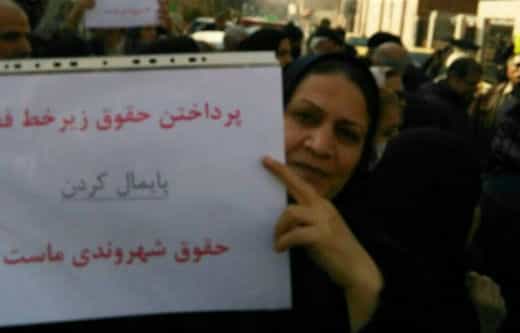 پرداختن حقوق زیر خط ف
پایمال کردن
حقوق شهروندی ماست